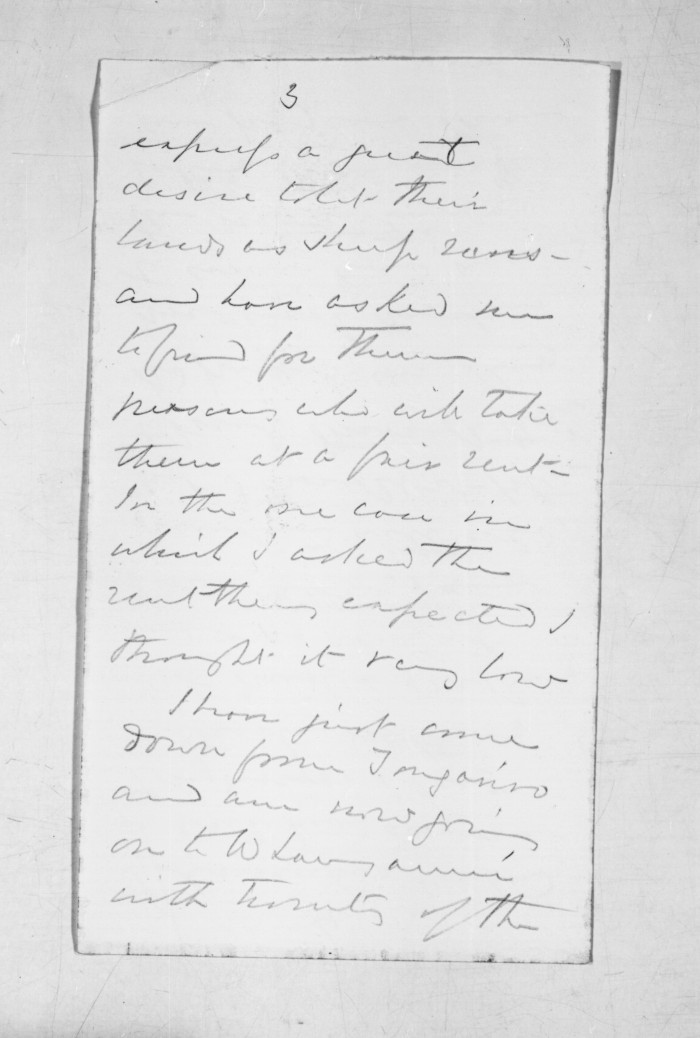 3
express a great
desire to let their
lands as sheep runs -
and have asked me
to find for them
persons who will take
them at a fair rent -
In the one case in
which I asked the
rent they expected I
thought it very low
I have just come
down from Tongariro
and am now going
on to Whanganui
with twenty of the